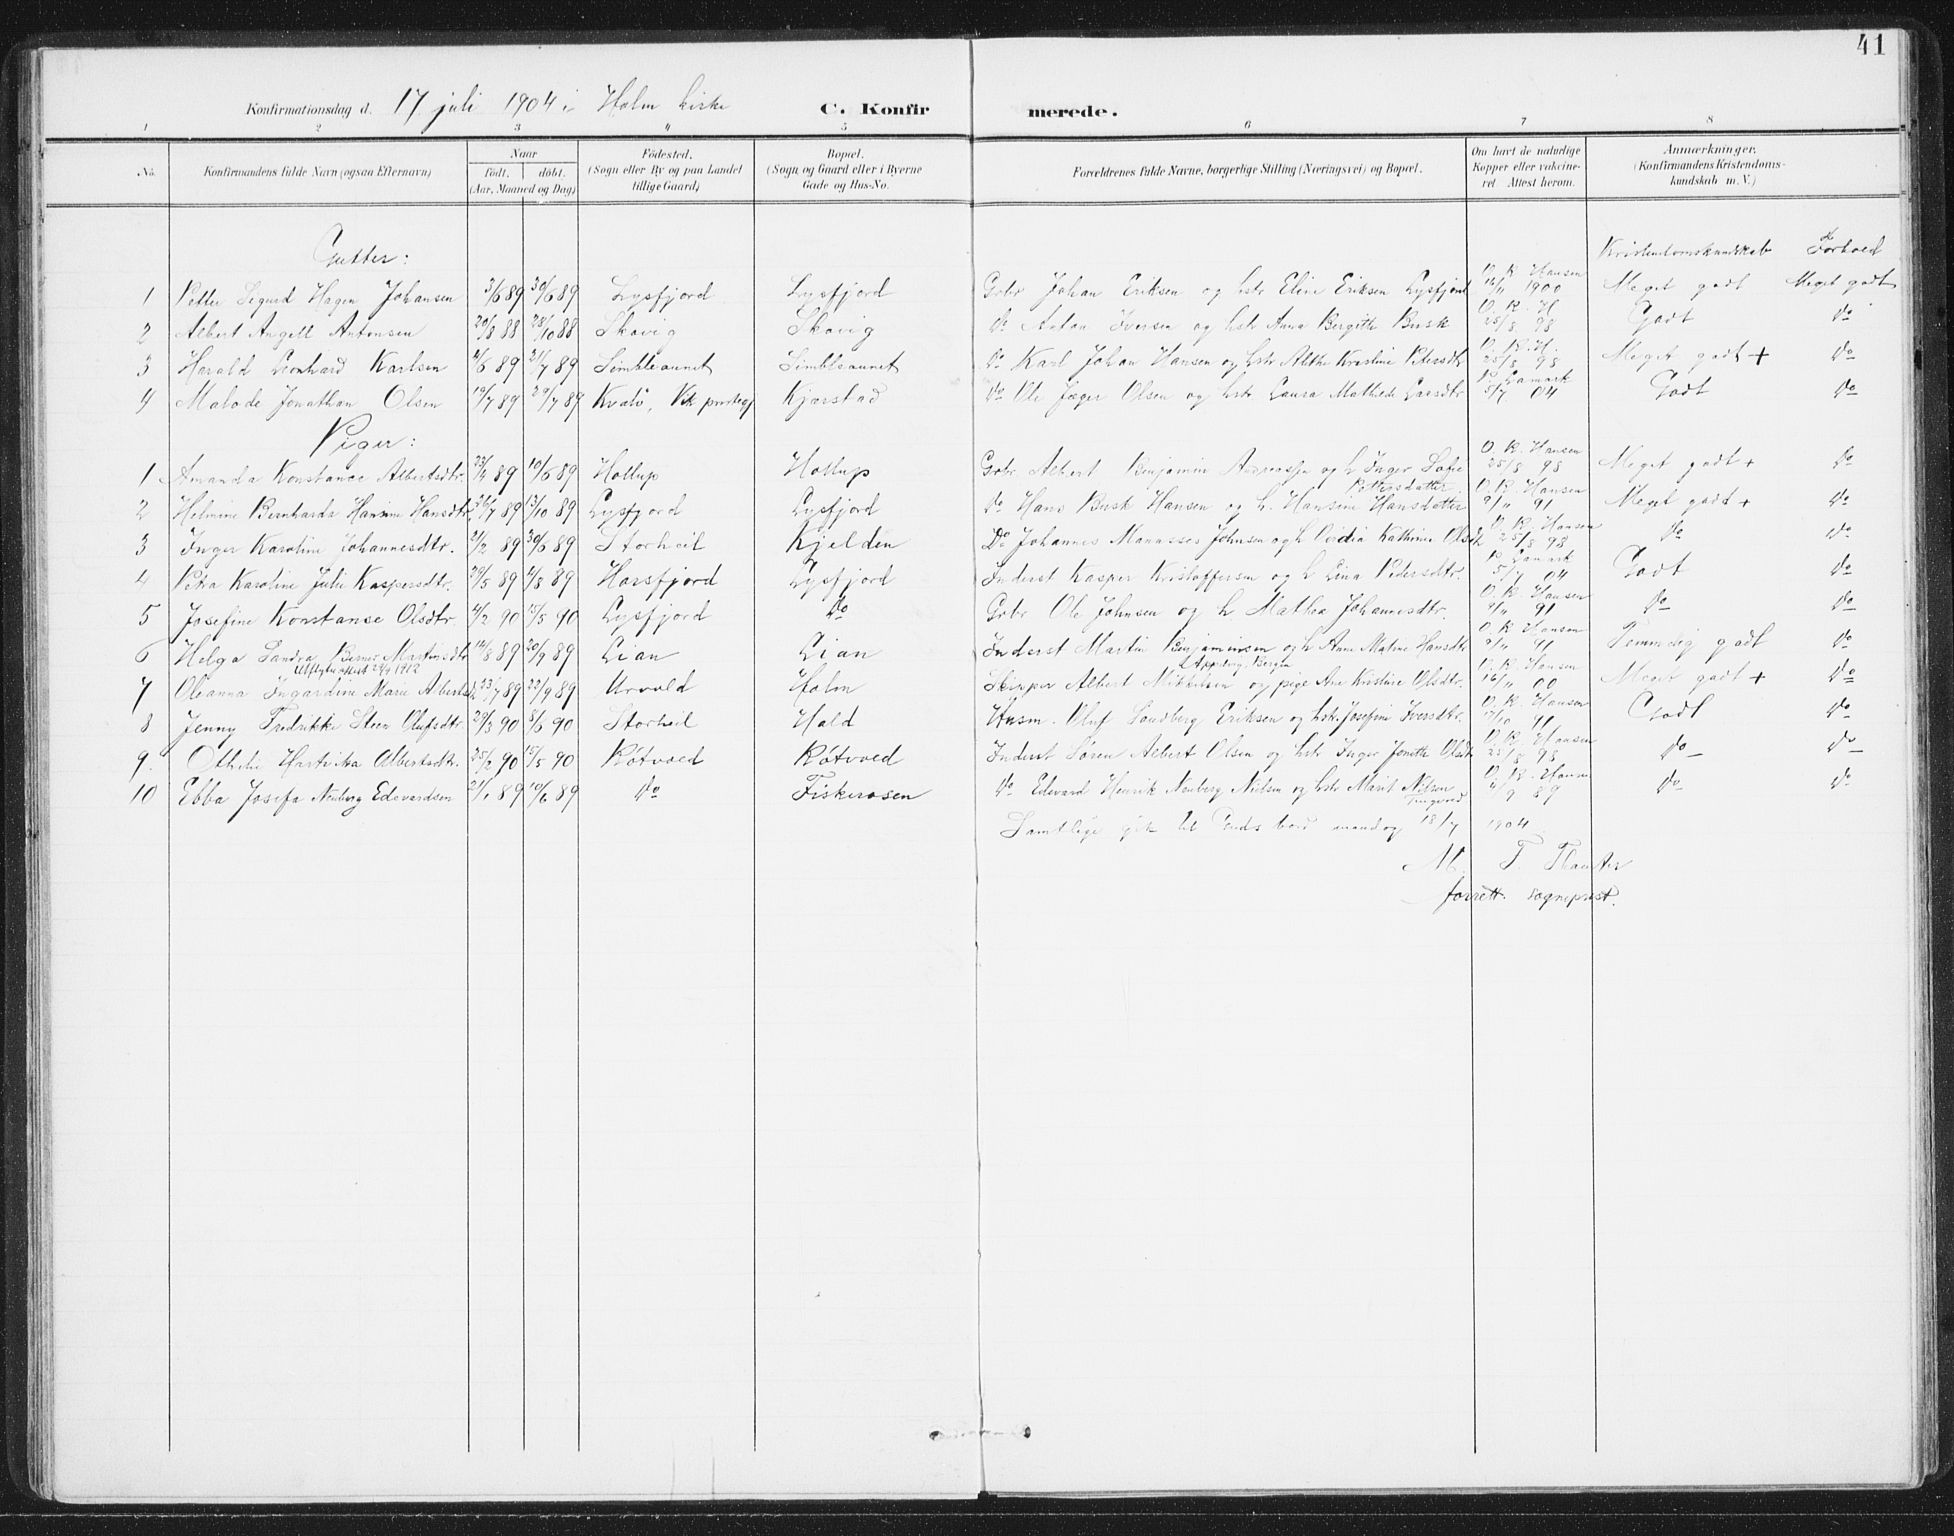 41
Konfirmationsdag d. 17 juli 1904 i Holm kirke C. Konfirmerede.
1 2 3 4 5 6 7 8
No. Konfirmandens fulde Navn (ogsaa Efternavn) Naar født. døbt. (Aar, Maaned og Dag) Fødested. (Sogn eller By og paa Landet tillige Gaard) Bopæl. (Sogn og Gaard eller i Byerne Gade og Hus-No. Forældrenes fulde Navne, borgerlige Stilling (Næringsvei) og Bopæl. Om havt de naturlige Kopper eller vakcineret Attest herom. Anmærkninger. (Konfirmandens Kristendomskundskab m. V.)
Gutter: Kristendomskundskab Forhold
1 Petter Sigurd Hagen Johansen 3/6 89 30/6 89 Lysfjord Lysfjord Gbr Johan Eriksen og hstr Eline Eriksen Lysfjord O. R. Hansen 16/11 1900 Meget godt Meget godt
2 Albert Angell Antonsen 20/8 88 28/10 88 Skavig Skavig do Anton Iversen og hstr Anna Bergitte Busk O. R. H. 25/8 98 Godt do
3 Harald Leonhard Karlsen 4/6 89 21/7 89 Simblesaunet Simblesaunet do Karl Johan Hansen og hstr Kristine Pedersdtr O. R. H. 25/8 98 Meget godt + do
4 Malode Jonathan Olsen 19/7 89 29/7 89 Kvalö, Vik prestegj Kjærstad do Ole Jæger Olsen og hstr Laura Mathilde Larsdtr P. Lamark 5/7 04 Godt do
Piger:
1 Amanda Konstance Albertsdtr. 23/4 89 10/6 89 Hollup Hollup Gbr Albert Benjamin Andreassen og h Inger Sofie Pettersdatter O. R. Hansen 25/8 98 Meget godt + do
2 Helmine Bernharde Hansine Hansdtr 26/7 89 13/10 89 Lysfjord Lysfjord do Hans Busk Hansen og h. Hansine Hansdatter O. R. Hansen 9/11 91 Meget godt + do
3 Inger Karoline Johannesdtr. 21/2 89 30/6 89 Storheil Kjelden Do Johannes Manasses Johnsen og h Kathrine Olsdtr O. R. Hansen 25/8 98 do do
4 Petra Karoline Julie Kaspersdtr. 29/5 89 4/8 89 Horsfjord Lysfjord Inderst Kasper Kristoffersen og h Lina Pedersdtr. P. Lamark 5/7 04 Godt do
5 Josefine Konstanse Olsdtr. 4/2 90 15/5 90 Lysfjord do Gbr Ole Johnsen og h Mathea Johannesdtr. O. R. Hansen 9/11 91 do do
6 Helga Sandra Berner Martinsdtr 14/8 89 20/9 89 Lian Lian Inderst Martin Benjaminsen og h Anne Matine Hansdtr O. R. Hansen 9/11 91 Temmelig godt do
7 Oleanna Ingardine Marie Albertsdtr 23/7 89 22/9 89 Urvold Holm Skipper Albert Mikkelsen og pige Ane Kristine Olsdtr. O. R. Hansen 16/11 00 Meget godt + do
8 Jenny Fredrikke Steen Olufsdtr. 29/3 90 8/6 90 Storheil Hald Husm. Oluf Sandberg Eriksen og hstr. Josefine Iversdtr. O. R. Hansen 91 Godt do
9. Othelie Albertsdtr. 25/2 90 15/5 90 Røtvoed Røtvoed Inderst Søren Albert Olsen og hstr Inger Jonette Olsdtr O. R. Hansen 25/8 98 do do
10 Ebba Josefa Neuberg Edevardsen 21/1 89 10/6 89 do Fiskerosen do Edevard Henrik Neuberg Nielsen og hstr Marit Nilsen O. R. Hansen 4/9 89 do do
Samtlige gik til Guds bord mandag 18/7 1904
M. T.
forrett. sogneprest.